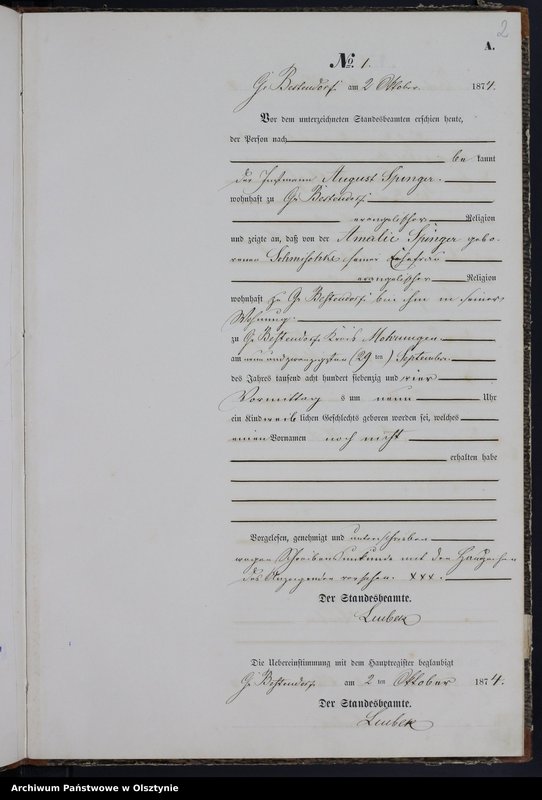 2
A.
№ 1.
Gr. Bestendorf am 2 Oktober 1874.
Vor dem unterzeichneten Standesbeamten erschien heute,
der Person nach
be kannt
der Instmann August Springer.
wohnhaft zu Gr. Bestendorf
evangelischer Religion
und zeigte an, daß von der Amalie Springer gebo-
renen seiner Ehefrau
evangelischer Religion
wohnhaft zu Gr. Bestendorf bei ihm in seiner
Wohnung.
zu Gr. Bestendorf Kreis Mohrungen
am neun und zwanzigsten (29 ten) September
des Jahres tausend acht hundert siebenzig und vier
Vormittag s um neun Uhr
ein Kind weib lichen Geschlechts geboren worden sei, welches
einen Vornamen noch nicht
erhalten habe
Vorgelesen, genehmigt und unterschrieben
wegen Schreibensunkunde mit den Handzeichen
des Anzeigenden versehen. xxx.
Der Standesbeamte.
Die Uebereinstimmung mit dem Hauptregister beglaubigt
Gr. Bestendorf am 2 ten Oktober 1874.
Der Standesbeamte.
Archiwum Państwowe w Olsztynie